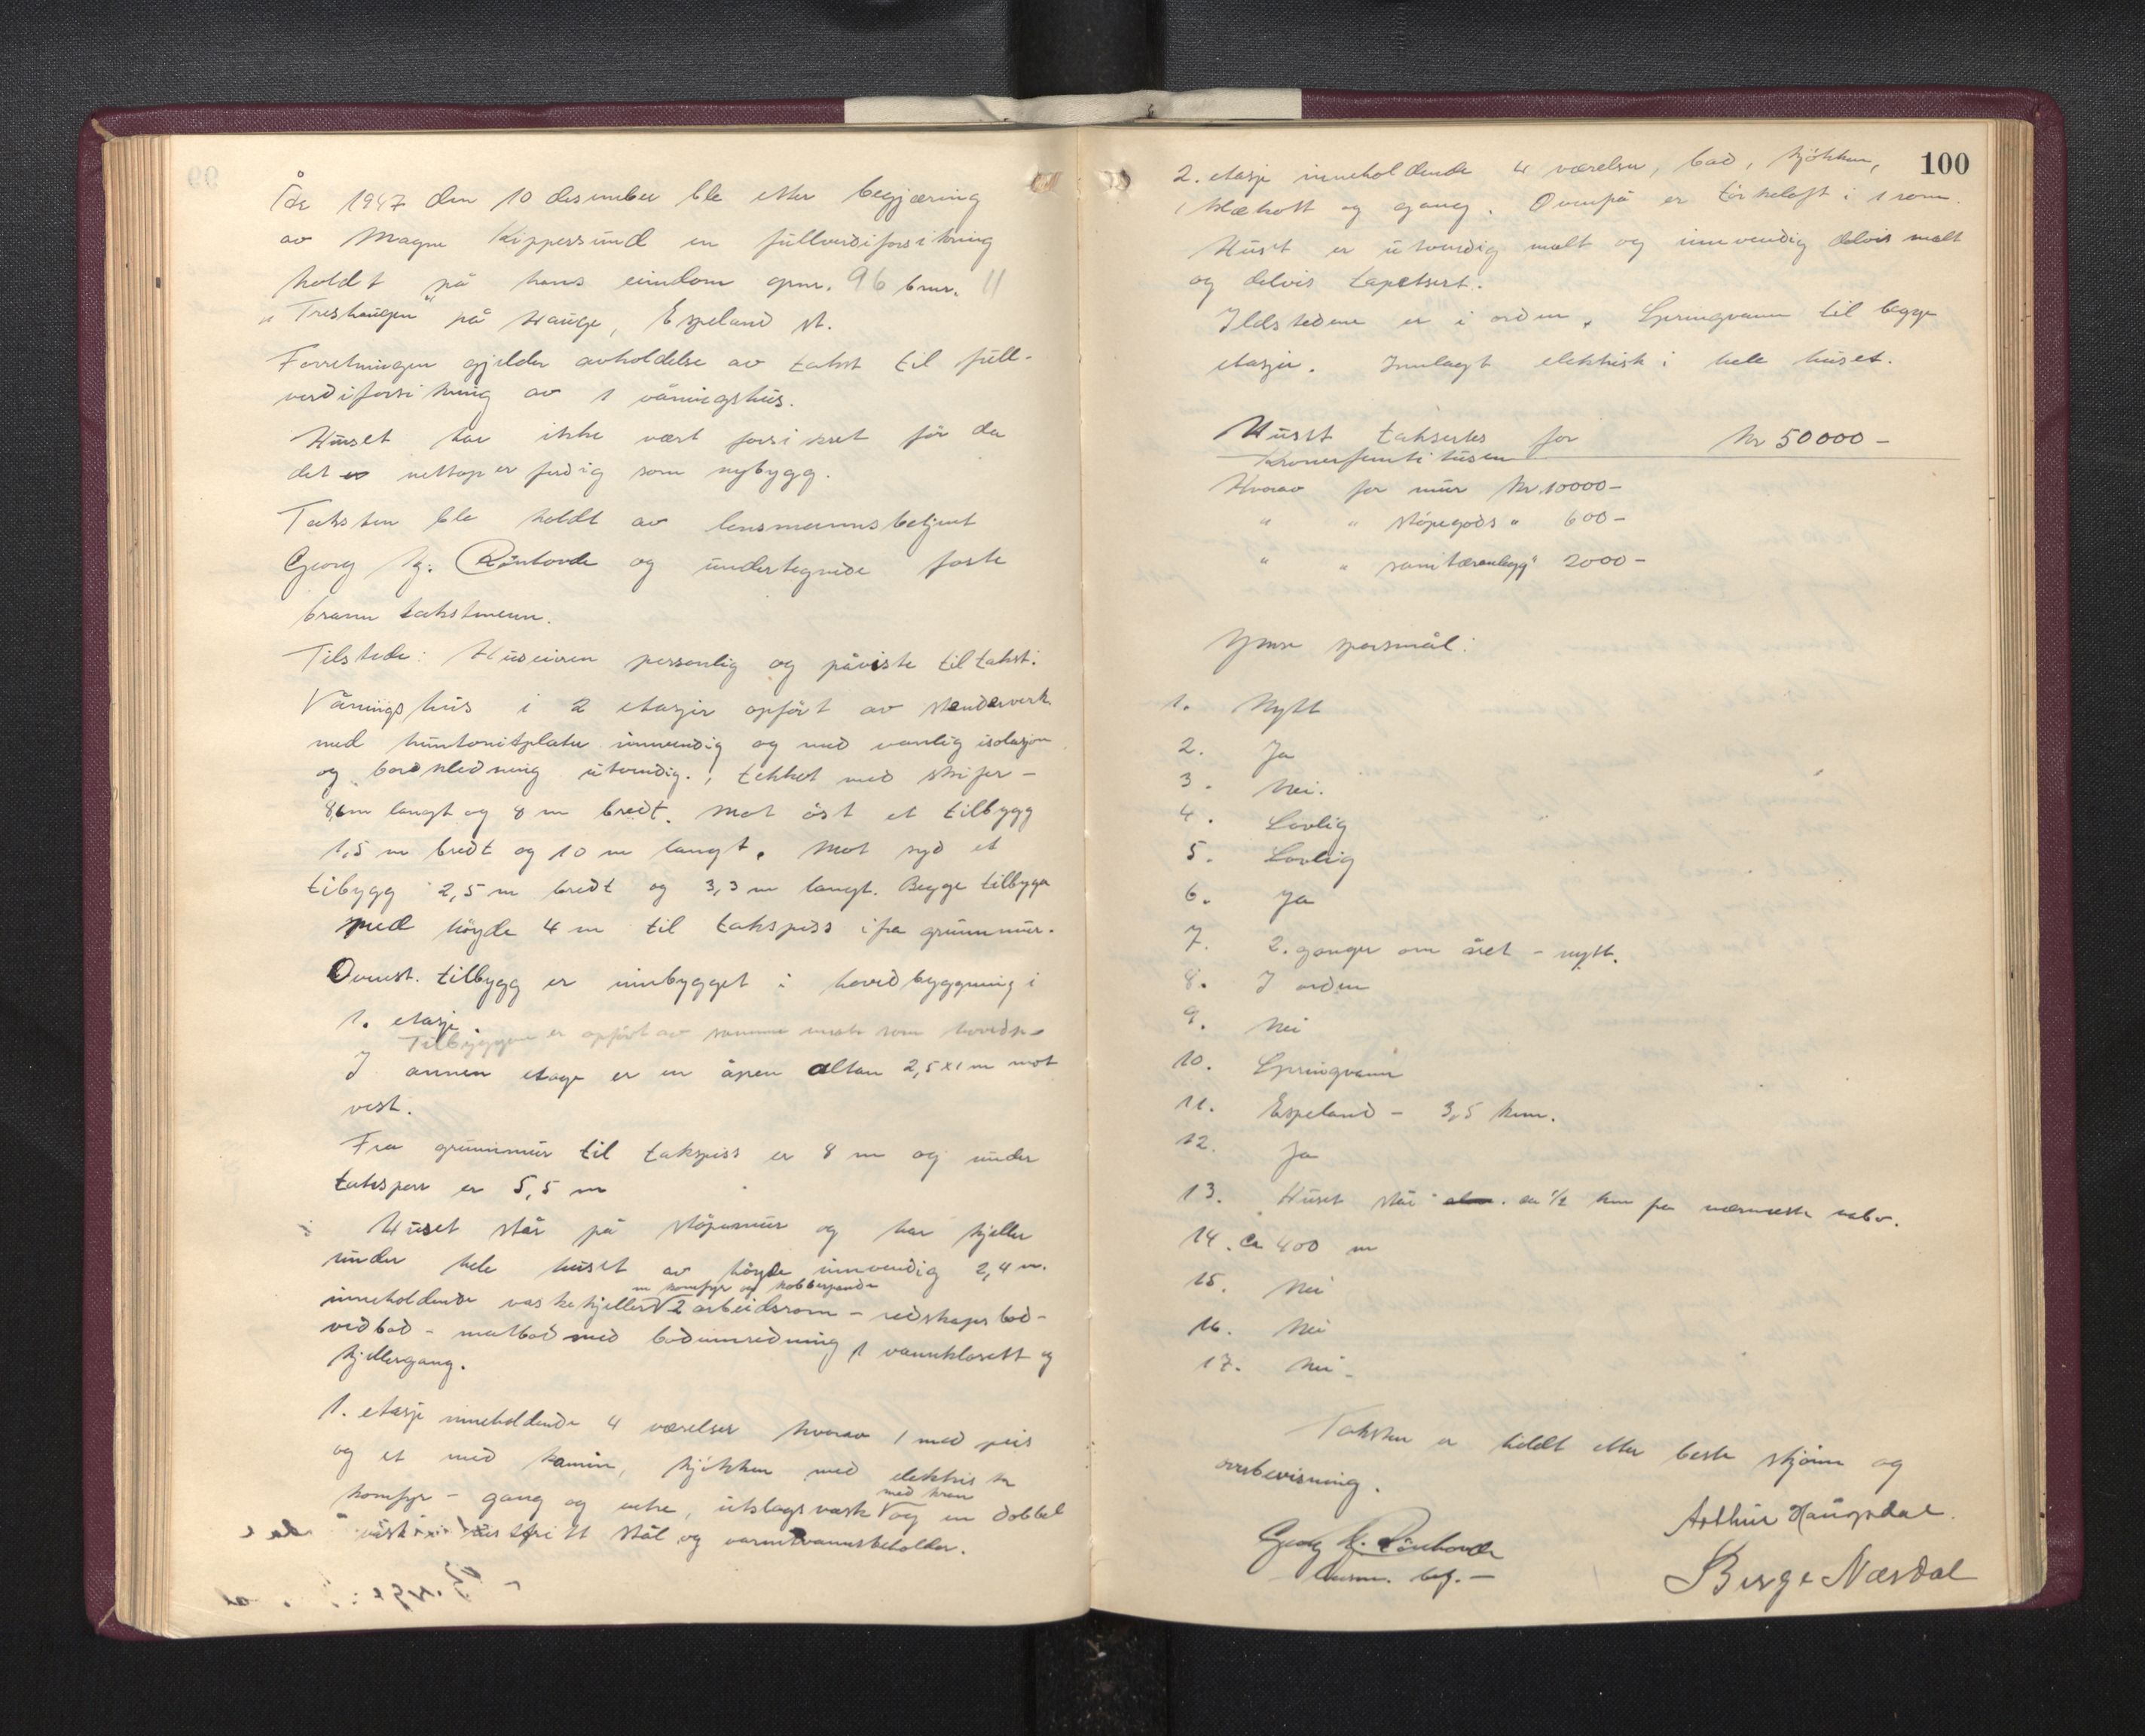 År 1947 den 10 desember ble etter begjæring
av Magne Kippersund en fullverdiforsikring
holdt på hans eiendom gnr. 96 bnr. 11
"Treshaugen" på Hauge, Espeland st.
Forretningen gjelder avholdelse av takst til full-
verdiforsikring av 1 våningshus.
Huset har ikke vært forsikret før da
det nettop er ferdig som nybygg.
Taksten ble holdt av lensmannsbetjent
Georg K. Rönhovde og undertegnede faste
brann takstmenn.
Tilstede: Huseieren personlig og påviste til takst.
Våningshus i 2 etasjer opført av stenderverk
med huntonitplater innvendig og med vanlig isolasjon
og bordkledning utvendig., tekket med skifer -
8,6m langt og 8 m bredt. Mot øst et tilbygg
1,5 m bredt og 10 m langt. Mot syd et
tibygg 2,5 m bredt og 3,3 m langt. Begge tilbygg
med høyde 4 m til takspiss ifra grunnmur.
Ovenst. tilbygg er innbygget i hovedbyggning i
1. etasje.
Tilbyggene er opført av samme mat. som hovedh.
I annen etage er en åpen altan 2,5x1 m mot
vest.
Fra grunnmur til takspiss er 8 m og under
takspar er 5,5 m
Huset står på støpemur og har kjeller
under hele huset av høyde innvendig 2,4 m.
m komfyr og kobberpanne
inneholdende vaskekjeller √ 2 arbeidsrom - redskaps bod -
vedbod - matbod med bodinnredning 1 vannklosett og
kjellergang.
1. etasje inneholdende 4 værelser hvorav 1 med peis
og et med kamin, kjøkken med elektrisk
med kran
komfyr - gang og entre, utslagsvask √ og en dobbel
rustfritt stål og varmtvannsbeholder.
100
2. etasje inneholdende 4 værelser, bad, kjøkken,
1 klækott og gang. Ovenpå er tørkeloft i 1 rom.
Huset er utvendig malt og innvendig delvis malt
og delvis tapetsert.
Ildstedene er i orden. Springvann til begge
etasjer. Innlagt elektrisk i hele huset.
Huset takseres for Kr 50000 -
Kronerfemtitusen
Hvorav for mur Kr 10000 -
" " støpegods " 600 -
" " sanitæranlegg " 2000 -
Ymse spørsmål:
1. Nytt
2. Ja
3. Nei.
4. Lovlig
5. Lovlig
6. Ja
7. 2. ganger om året - nytt.
8. I orden
9. Nei
10. Springvann
11. Espeland - 3,5 km.
12. Ja
13. Huset står ca 1/2 km fra nærmeste nabo.
14. Ca 400 m
15. Nei
16. Nei
17. Nei -
Taksten er holdt etter beste skjønn og
overbevisning.
Georg K. Rönhovde
lensm. betj. -
Arthur Haugsdal.
Birge Næsdal